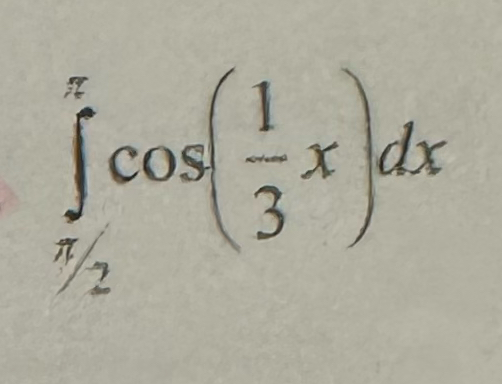 ∫_{π/2}^{π} cos(1/3 x) dx